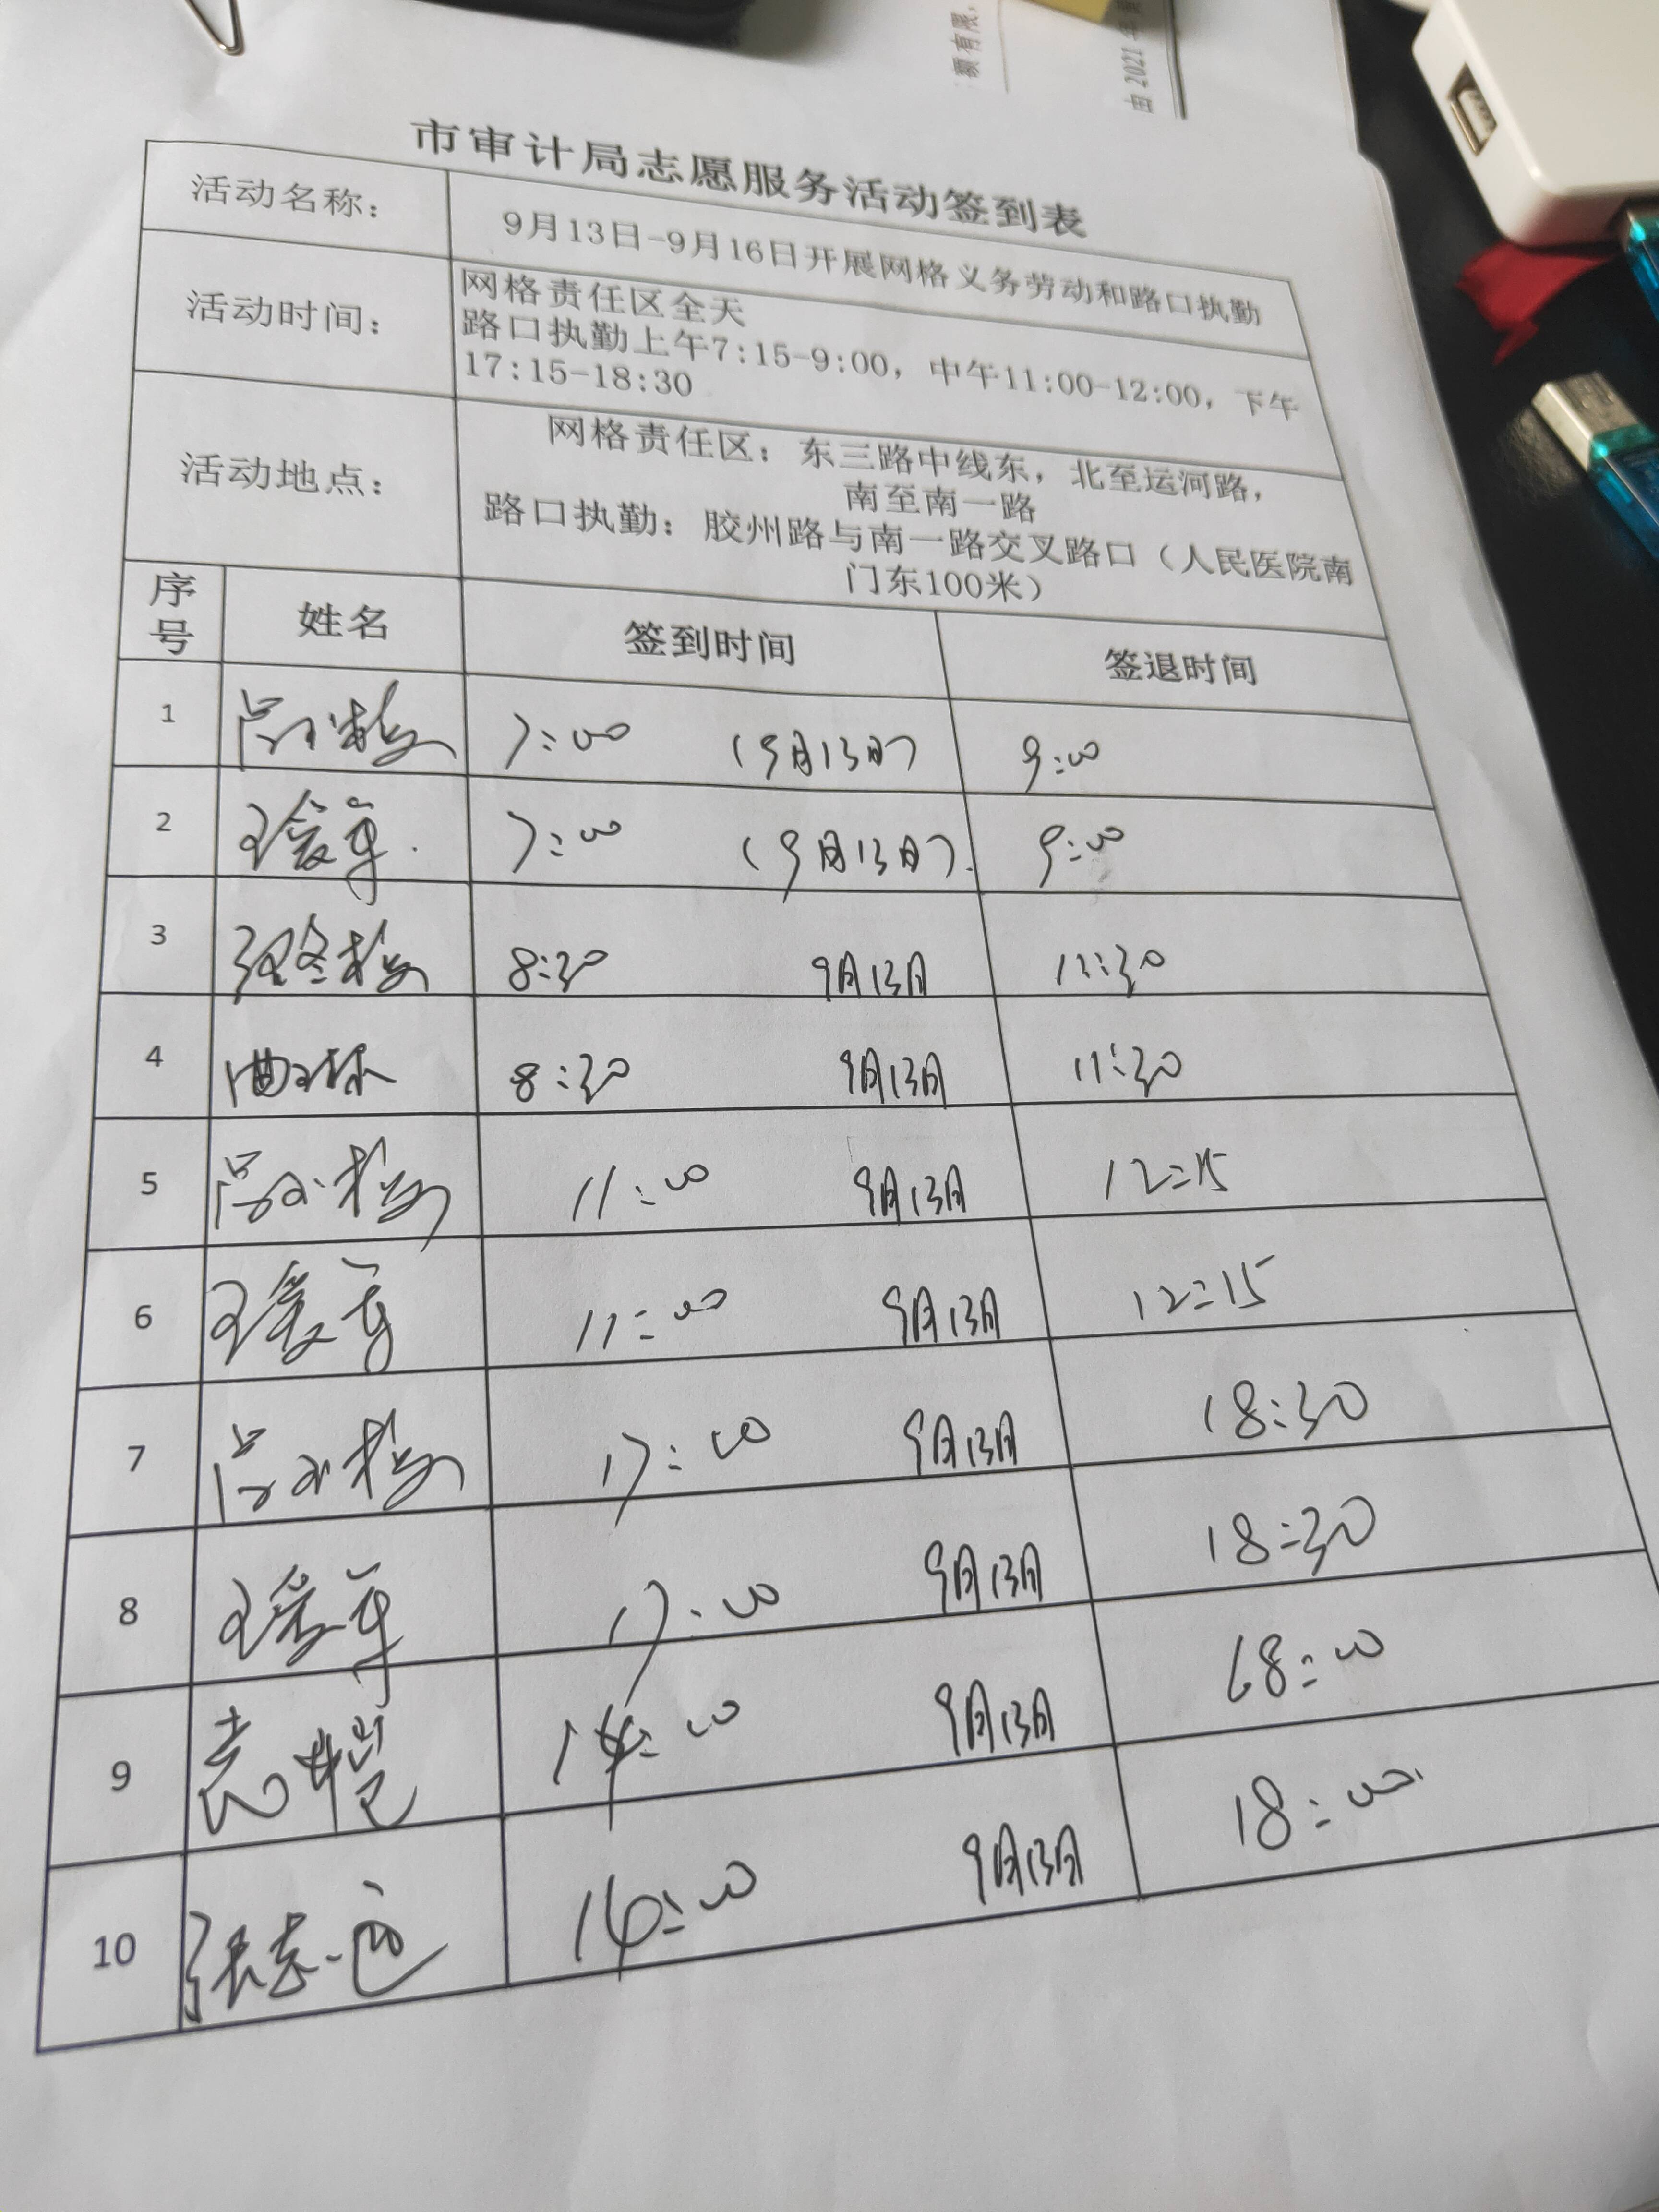 由 2021 年
市审计局志愿服务活动签到表
活动名称： 9月13日-9月16日开展网格义务劳动和路口执勤
活动时间： 网格责任区全天
路口执勤上午7:15-9:00，中午11:00-12:00，下午
17:15-18:30
活动地点： 网格责任区：东三路中线东，北至运河路，
南至南一路
路口执勤：胶州路与南一路交叉路口（人民医院南
门东100米）
序号 姓名 签到时间 签退时间
1 7:00 (9月13日) 9:00
2 7:00 (9月13日) 9:00
3 8:30 9月13日 11:30
4 8:30 9月13日 11:30
5 11:00 9月13日 12:15
6 11:00 9月13日 12:15
7 17:00 9月13日 18:30
8 17:00 9月13日 18:30
9 袁 14:00 9月13日 18:00
10 张志 14:00 9月13日 18:00